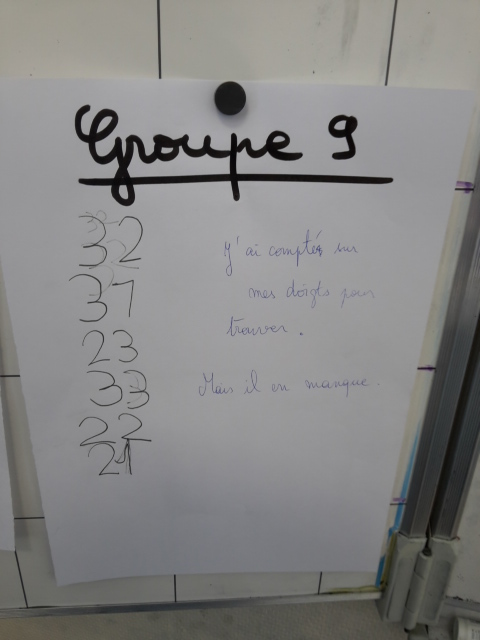 Groupe 9
32
31
23
33
22
21
J'ai comptés sur
mes doigts pour
trouver.
Mais il en manque.